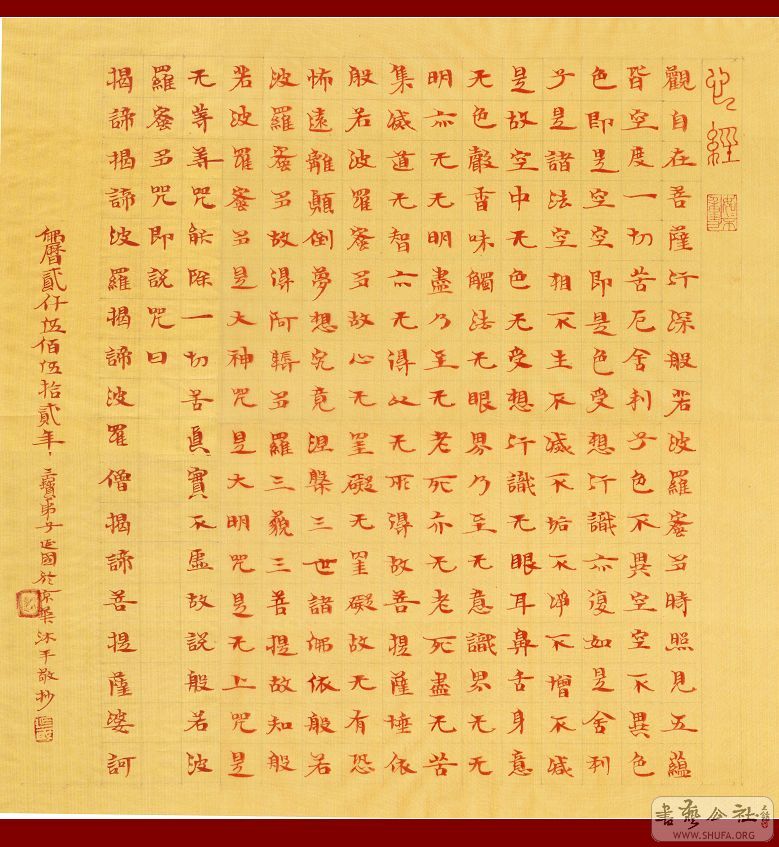 心經
觀自在菩薩行深般若波羅蜜多時照見五蘊
皆空度一切苦厄舍利子色不異空空不異色
色即是空空即是色受想行識亦復如是舍利
子是諸法空相不生不滅不垢不淨不增不减
是故空中无色无受想行識无眼耳鼻舌身意
无色聲香味觸法无眼界乃至无意識界无无
明亦无无明盡乃至无老死亦无老死盡无苦
集滅道无智亦无得以无所得故菩提薩埵依
般若波羅蜜多故心无罣礙无罣礙故无有恐
怖遠離顛倒夢想究竟涅槃三世諸佛依般若
波羅蜜多故得阿耨多羅三藐三菩提故知般
若波羅蜜多是大神咒是大明咒是无上咒是
无等等咒能除一切苦真實不虛故說般若波
羅蜜多咒即說咒曰
揭諦揭諦波羅揭諦波羅僧揭諦菩提薩婆訶
佛曆貳仟伍佰伍拾貳年，三寶弟子延國於京華沐手敬抄
書藝公社
WWW.SHUFA.ORG